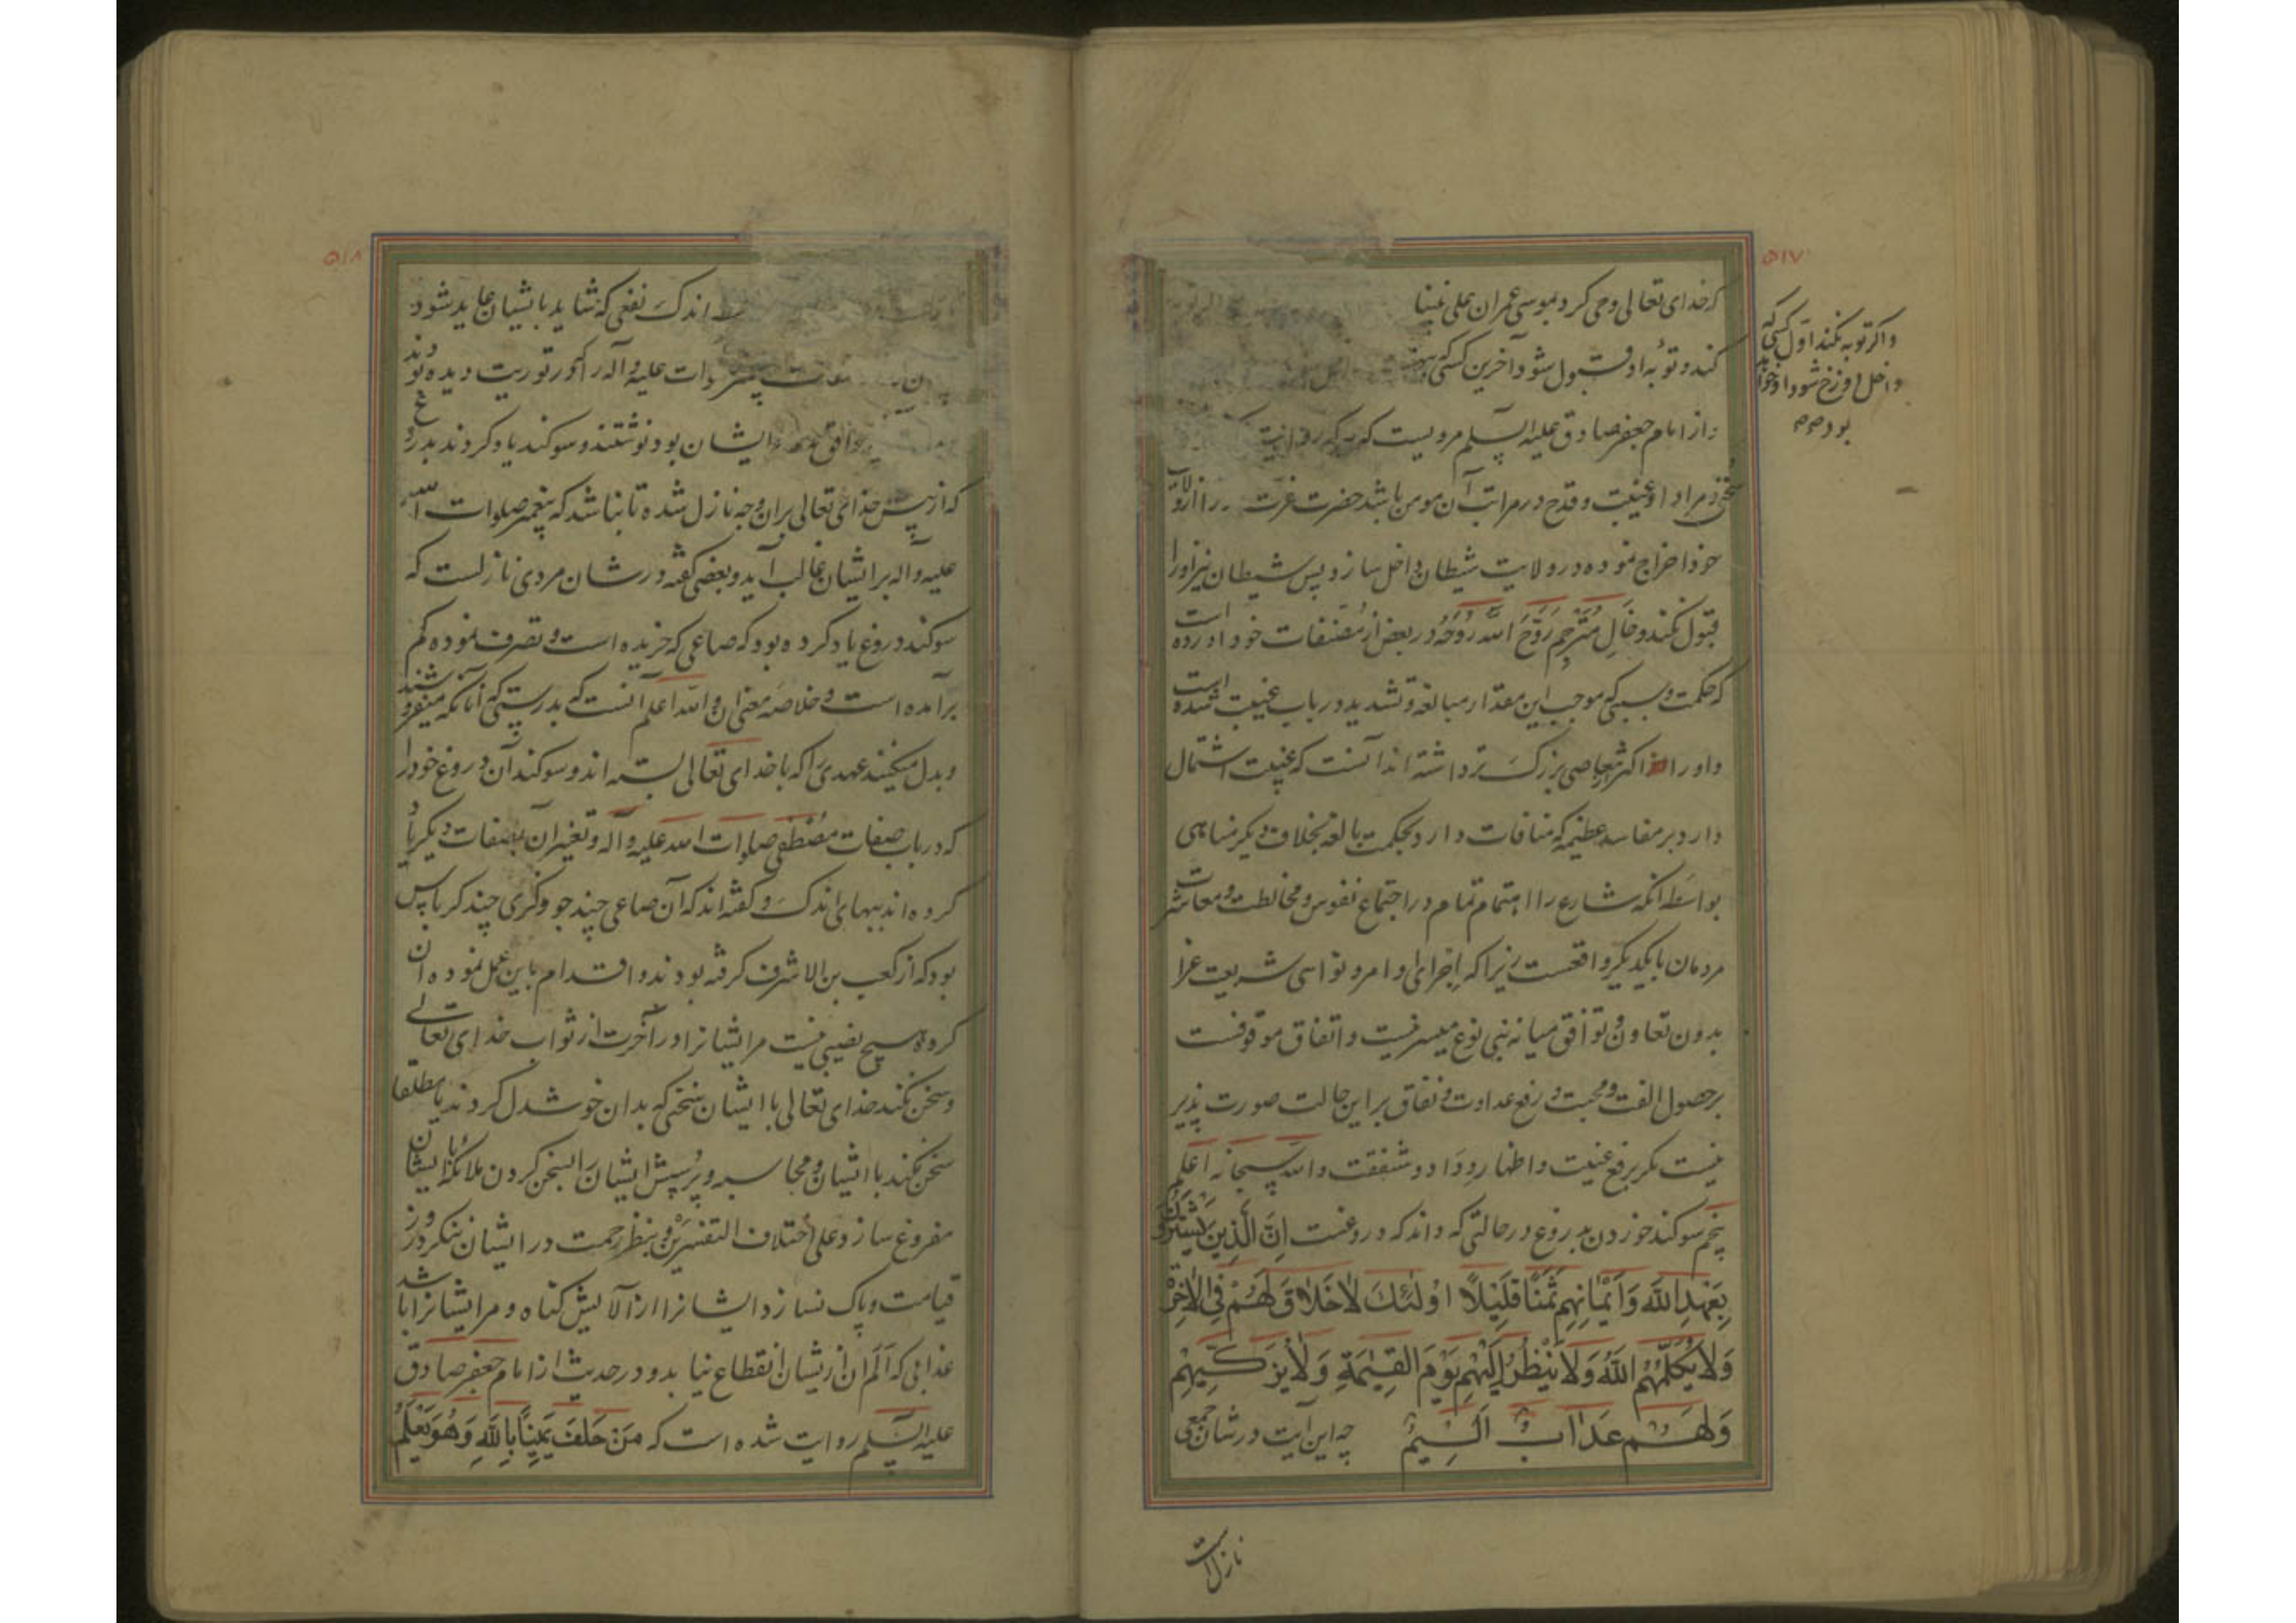 ۵۱۷
که خدای تعالی وحی کرد بموسی عمران علی نبینا
کند و توبهٔ او قبول شود آخرین کسی که
و از امام جعفر صادق علیه السلم مرویست که هر که روایت
سخنی و مراد او غیبت و قدح در مراتب آن مومن باشد حضرت عزت او را از ولایت
خود اخراج نموده در ولایت شیطان داخل سازد پس شیطان نیز او را
قبول نکند و خال مترجم روح الله روحه در بعض از مصنفات خود آورده است
که حکمت و سببی که موجب این مقدار مبالغه و تشدید در باب غیبت شده است
و او را از اکثر معاصی بزرگ تر داشته اند آنست که غیبت اشتمال
دارد بر مفاسد عظیمه که منافات دارد بحکمت بالغه بخلاف دیگر مناهی
بواسطه انکه شارع را اهتمام تمام در اجتماع نفوس و مخالطت و معاشرت
مردمان با یکدیگر واقعست زیرا که اجرای اوامر و نواهی شریعت غرا
بدون تعاون و توافق میانه بنی نوع میسر نیست و اتفاق موقوفست
بر حصول الفت و محبت و رفع عداوت و نفاق بر این حالت صورت پذیر
نیست مکر برفع غیبت و اظهار وداد و شفقت والله سبحانه اعلم
پنجم سوکند خوردن بدروغ در حالتی که داند که دروغست اِنَّ الَّذِینَ یَشْتَرُونَ
بِعَهْدِ اللهِ وَاَیْمَانِهِم ثَمَنًا قَلِیْلًا اُولٰئِكَ لَاخَلَاقَ لَهُمْ فِی الْاٰخِرَةِ
وَلَا یُكَلِّمُهُمُ اللهُ وَلَا یَنْظُرُ اِلَیْهِم یَوْمَ الْقِیٰمَةِ وَلَا یُزَكِّیهِمْ
وَلَهُمْ عَذَابٌ اَلِیْمٌ چه این آیت در شان جمعی
نازل است
واکر توبه نکند اول کسی که
داخل دوزخ شود او خواهد
بود صح
۵۱۸
اندک نفعی که شاید بایشان عاید شود
صلوات علیه و آله را که در توریت دیده بودند
موافق مدعای ایشان بود نوشتند و سوکند یاد کردند بدروغ
که از پیش خدای تعالی بر ان وجه نازل شده تا نباشد که پیغمبر صلوات الله
علیه و آله بر ایشان غالب آید و بعضی کفته در شان مردی نازلست که
سوکند دروغ یاد کرده بود که صاعی که خریده است و تصرف نموده کم
برآمده است و خلاصه معنی ان والله اعلم آنست که بدرستی که آنانکه میفروشند
و بدل میکنند عهدی را که با خدای تعالی بسته اند و سوکند آن دروغ خود را
که در باب صفات مصطفی صلوات الله علیه و آله و تغیر آن بصفات دیکر یاد
کرده اند ببهای اندک و کفته اند که آن صاعی چند جو و کزی چند کرباس
بود که از کعب بن الاشرف کرفته بودند و اقدام باین عمل نموده ان
کروه هیچ نصیبی نیست مر ایشانرا در آخرت از ثواب خدای تعالی
و سخن نکند خدای تعالی با ایشان سخنی که بدان خوشدل کردند یا مطلقا
سخن نکند با ایشان و محاسبه و پرسش ایشان را بسخن کردن ملائکه با ایشان
مفروغ سازد و علی اختلاف التفسیرین و بنظر رحمت در ایشان ننکرد روز
قیامت و پاک نسازد ایشانرا از آلایش کناه و مر ایشانرا باشد
عذابی که الم ان از یشان انقطاع نیابد و در حدیث از امام جعفر صادق
علیه السلم روایت شده است که مَن حَلَفَ یَمِیْنًا بِاللهِ وَهُوَ یَعْلَمُ